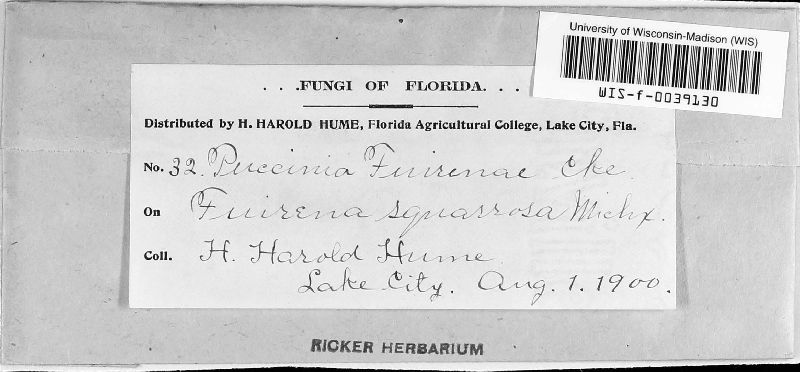 University of Wisconsin-Madison (WIS)
WIS-f-0039130
. . .FUNGI OF FLORIDA. . .
Distributed by H. HAROLD HUME, Florida Agricultural College, Lake City, Fla.
No. 32. Puccinia Fuirenae Cke.
On Fuirena squarrosa Michx.
Coll. H. Harold Hume.
Lake City. Aug. 1. 1900.
RICKER HERBARIUM